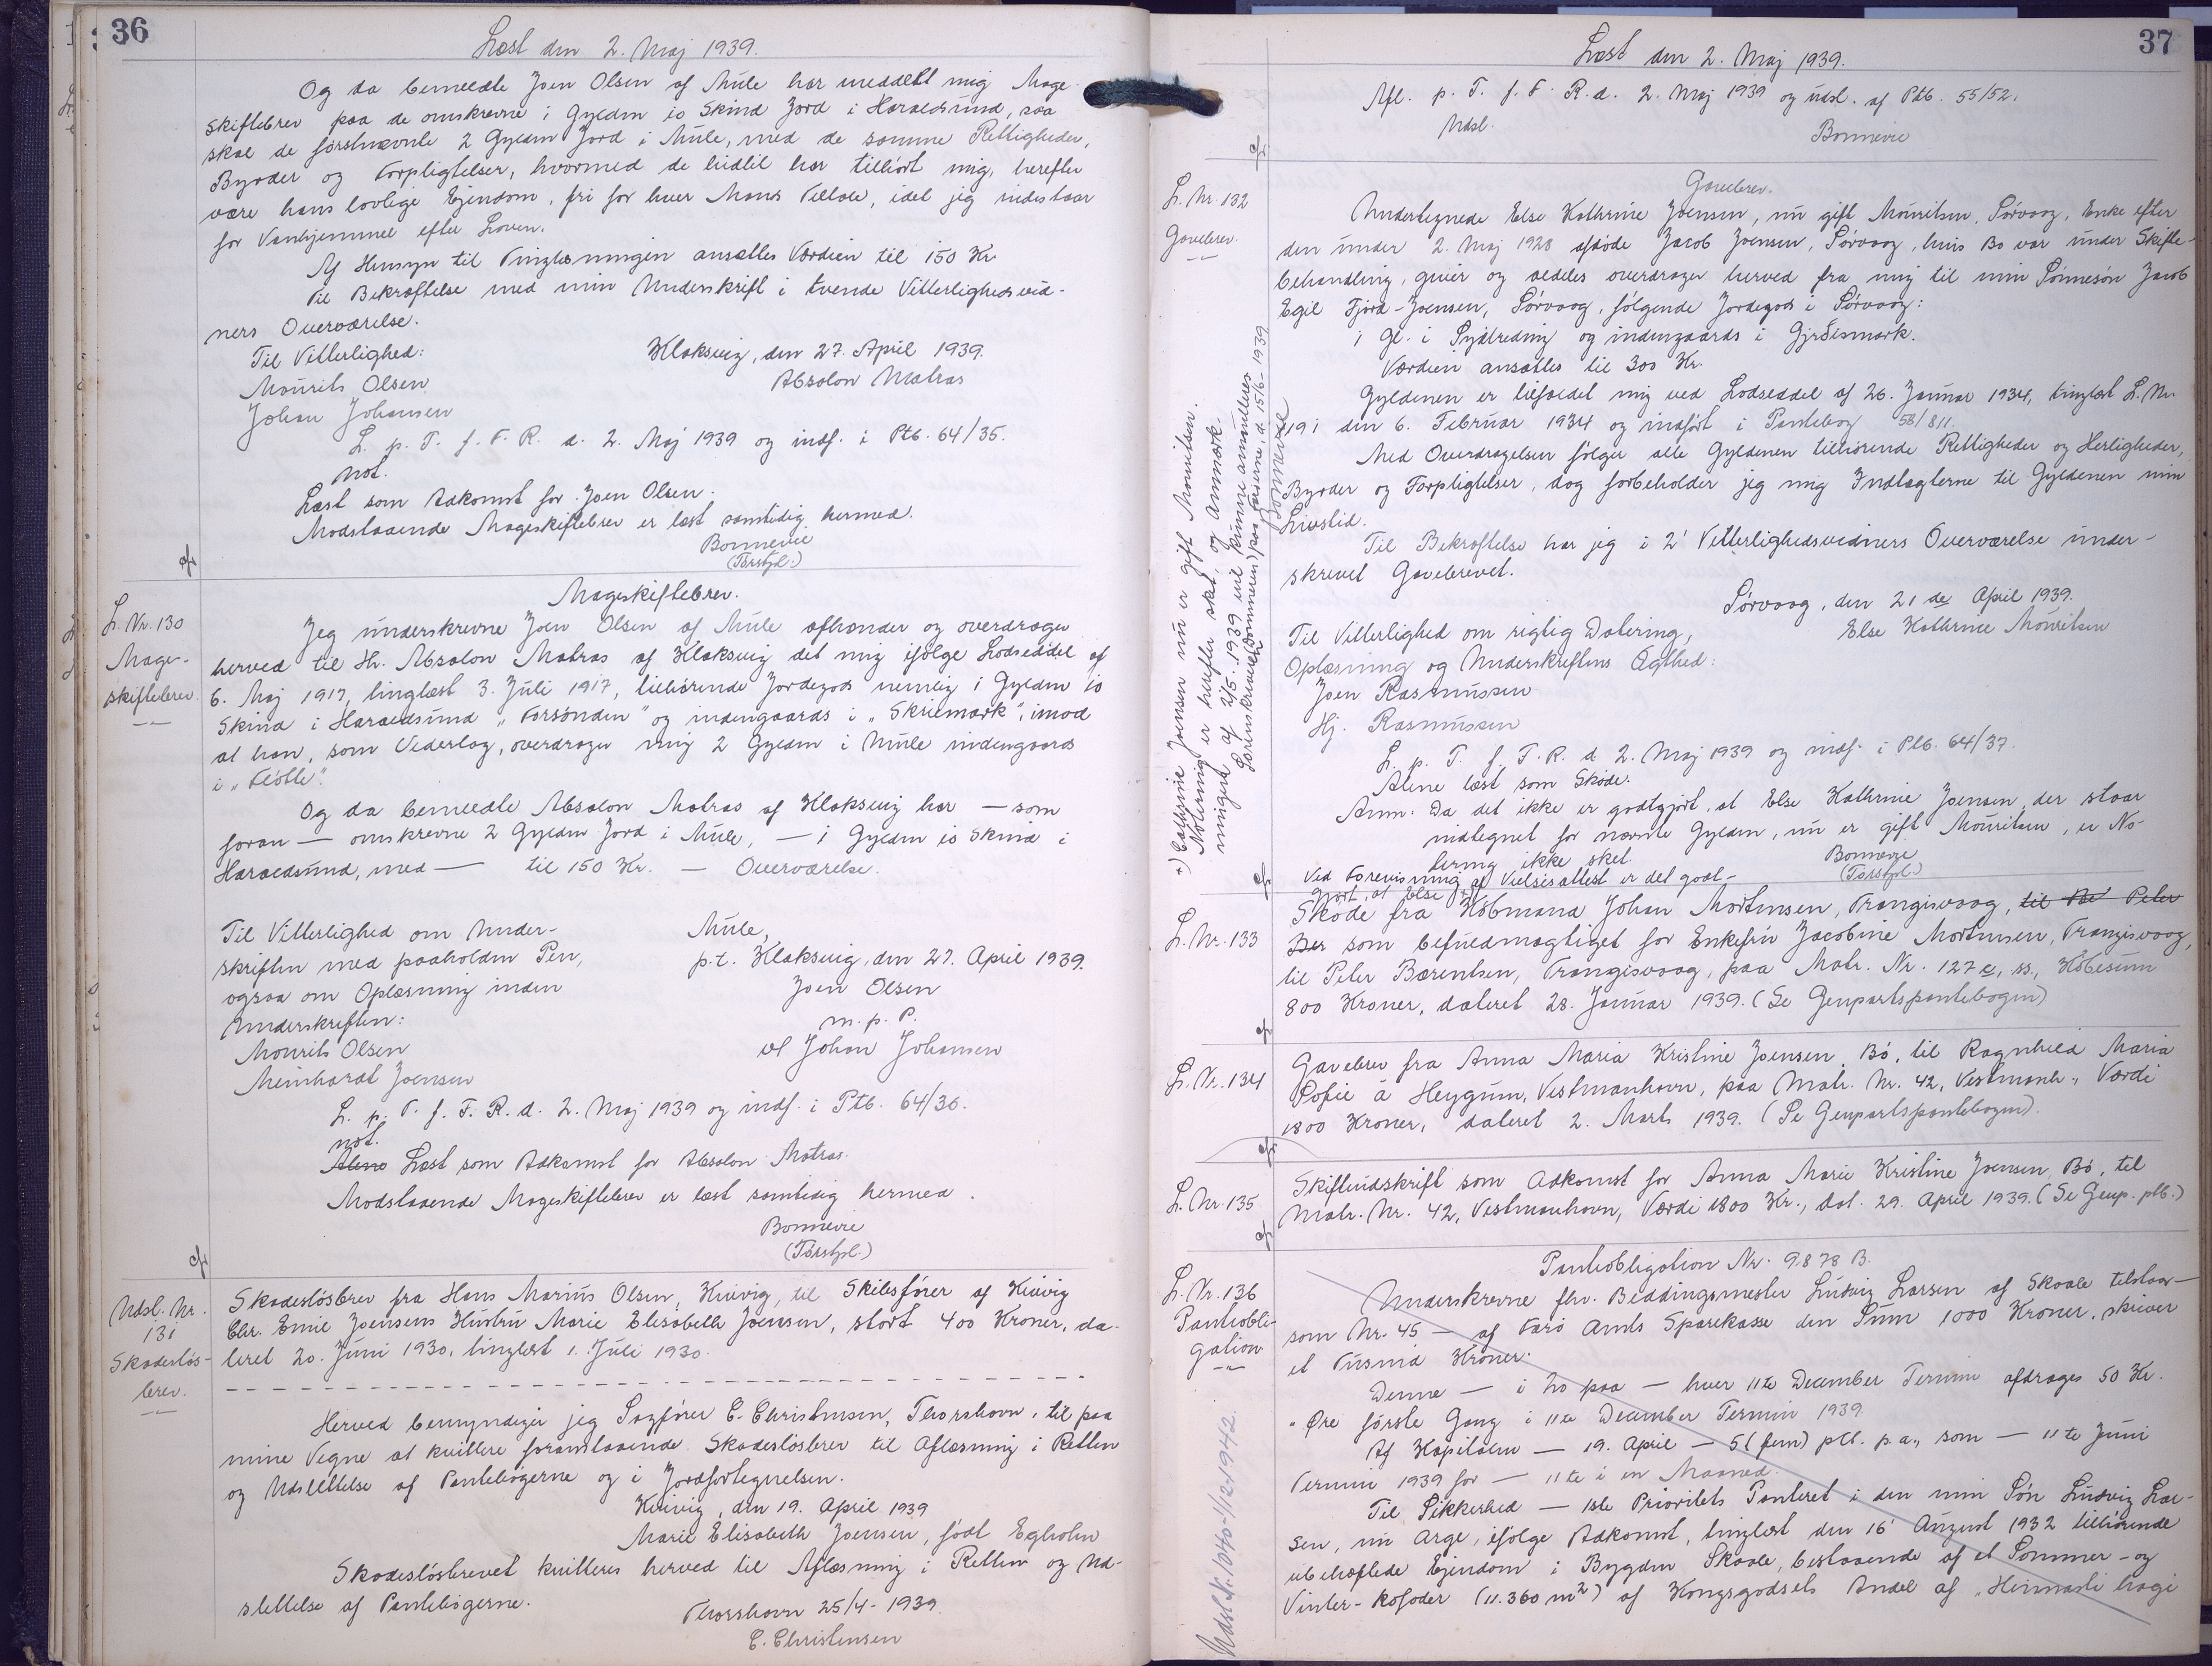 36
Læst den 2. Maj 1939.
Og da bemeldte Joen Olsen af Mule har meddelt mig Mage-
skiftebrev paa de omskrevne 1 Gylden 10 Skind Jord i Haraldsund, saa
skal de førstnævnte 2 Gylden Jord i Mule, med de samme Rettigheder,
Byrder og Forpligtelser, hvormed de hidtil har tilhørt mig, herefter
være hans lovlige Ejendom, fri for hver Mands Tiltale, idet jeg indestaar
for Vanhjemmel efter Loven.
Af Hensyn til Tinglæsningen ansættes Værdien til 150 Kr.
Til Bekræftelse med min Underskrift i tvende Vitterlighedsvid-
ners Overværelse.
Til Vitterlighed:
Klaksvig, den 27. April 1939.
Mourits Olsen
Absalon Matras
Johan Johansen
L. p. T. f. F. R. d. 2. Maj 1939 og indf. i Ptb. 64/35.
not.
Læst som Adkomst for Joen Olsen.
Modstaaende Mageskiftebrev er læst samtidig hermed.
Bonnevie
(Tórshpl.)
Mageskiftebrev.
L. Nr. 130
Mage-
skiftebrev.
Jeg underskrevne Joen Olsen af Mule afhænder og overdrager
herved til Hr. Absalon Matras af Klaksvig det mig ifølge Lodseddel af
6. Maj 1917, tinglæst 3. Juli 1917, tilhørende Jordegods nemlig 1 Gylden 10
Skind i Haraldsund „Forsønden" og indengaards i „Skriemark", imod
at han, som Vederlag, overdrager mig 2 Gylden i Mule indengaards
i „Fløtte".
Og da bemeldte Absalon Matras af Klaksvig har — som
foran — omskrevne 2 Gylden Jord i Mule, — 1 Gylden 10 Skind i
Haraldsund, med — til 150 Kr. — Overværelse.
Til Vitterlighed om Under-
skriften med paaholden Pen,
ogsaa om Oplæsning inden
Underskriften:
Mourits Olsen
Meinhardt Joensen
Mule,
p.t. Klaksvig, den 27. April 1939.
Joen Olsen
m. p. P.
v/ Johan Johansen
L. p. T. f. F. R. d. 2. Maj 1939 og indf. i Ptb. 64/36.
not.
Alene Læst som Adkomst for Absalon Matras.
Modstaaende Mageskiftebrev er læst samtidig hermed.
Bonnevie
(Tórshpl.)
Udsl. Nr.
131
Skadesløs-
brev.
Skadesløsbrev fra Hans Marius Olsen, Kvivig, til Skibsfører af Kvivig
Chr. Emil Joensens Hustru Marie Elisabeth Joensen, stort 400 Kroner, da-
teret 20. Juni 1930, tinglæst 1. Juli 1930.
Herved bemyndiger jeg Sagfører C. Christensen, Thorshavn, til paa
mine Vegne at kvittere foranstaaende Skadesløsbrev til Aflæsning i Retten
og Udslettelse af Pantebøgerne og i Jordfortegnelsen.
Kvivig, den 19. April 1939
Marie Elisabeth Joensen, født Egholm
Skadesløsbrevet kvitteres herved til Aflæsning i Retten og Ud-
slettelse af Pantebøgerne.
Thorshavn 25/4 - 1939.
C. Christensen
37
Læst den 2. Maj 1939.
Afl. p. T. f. F. R. d. 2. Maj 1939 og udsl. af Ptb. 55/52.
Udsl.
Bonnevie
L. Nr. 132
Gavebrev.
Gavebrev.
Undertegnede Else Kathrine Joensen, nu gift Mouritsen, Sørvaag, Enke efter
den under 2. Maj 1928 afdøde Jacob Joensen, Sørvaag, hvis Bo var under Skifte-
behandling, giver og aldeles overdrager herved fra mig til min Sønnesøn Jacob
Egil Fjord-Joensen, Sørvaag, følgende Jordegods i Sørvaag:
1 Gl. i Sydtreding og indengaards i Gjrðismørk.
Værdien ansættes til 300 Kr.
Gyldenen er tilfaldet mig ved Lodseddel af 26. Januar 1934, tinglæst L. Nr.
191 den 6. Februar 1934 og indført i Pantebog 58/811.
Med Overdragelsen følger alle Gyldenen tilhørende Rettigheder og Herligheder,
Byrder og Forpligtelser, dog forbeholder jeg mig Indtægterne til Gyldenen min
Livstid.
Til Bekræftelse har jeg i 2' Vitterlighedsvidners Overværelse under-
skrevet Gavebrevet.
Sørvaag, den 21de April 1939.
Til Vitterlighed om rigtig Datering,
Else Kathrine Mouritsen
Oplæsning og Underskriftens Ægthed:
Joen Rasmussen
Hj. Rasmussen
L. p. T. f. F. R. d. 2. Maj 1939 og indf. i Ptb. 64/37.
Alene læst som Skøde.
Anm: Da det ikke er godtgjort, at Else Kathrine Joensen, der staar
indtegnet for nævnte Gylden, nu er gift Mouritsen, er No-
tering ikke sket.
Bonnevie
(Tórshpl.)
Ved Forevisning af Vielsesattest er det godt-
gjort, at Else +)
+) Cathrine Joensen nu er gift Mouritsen.
Notering er herefter sket, og Anmærk-
ningen af 2/5. 1939 vil kunne annulleres
Sorenskriveren (Dommeren) paa Færøerne, d. 15/6-1939
Bonnevie
L. Nr. 133
Skøde fra Købmand Johan Mortensen, Trangisvaag, til Nr Peter
Bær som befuldmægtiget for Enkefru Jacobine Mortensen, Trangisvaag,
til Peter Bærentsen, Trangisvaag, paa Matr. Nr. 127e, ss., Købesum
800 Kroner, dateret 28. Januar 1939. (Se Genpartspantebogen)
L. Nr. 134
Gavebrev fra Anna Maria Kristine Joensen, Bø, til Ragnhild Maria
Sofie á Heygum, Vestmanhavn, paa Matr. Nr. 42, Vestmanh., Værdi
1800 Kroner, dateret 2. Marts 1939. (Se Genpartspantebogen).
L. Nr. 135
Skifteudskrift som Adkomst for Anna Marie Kristine Joensen, Bø, til
Matr. Nr. 42, Vestmanhavn, Værdi 1800 Kr., dat. 29. April 1939. (Se Genp. ptb.)
L. Nr. 136
Pantobli-
gation
Pantobligation Nr. 9878 B.
Underskrevne fhv. Beddingsmester Ludvig Larsen af Skaale tilstaar —
som Nr. 45 — af Færø Amts Sparekasse den Sum 1000 Kroner, skriver
et Tusind Kroner.
Denne — i No paa — hver 11te December Termin afdrages 50 Kr.
" Øre første Gang i 11te December Termin 1939.
Af Kapitalen — 19. April — 5 (fem) pCt. p.a., som — 11te Juni
Termin 1939 for — 11te i en Maaned.
Til Sikkerhed — 1ste Prioritets Panteret i den min Søn Ludvig Lar-
sen, nu Arge, ifølge Adkomst, tinglæst den 16' August 1932 tilhørende
ubehæftede Ejendom i Bygden Skaale, bestaaende af et Sommer- og
Vinter-kofoder (11.360 m²) af Kongsgodsets Andel af
Udsl. Nr. 1040 - 1/12-1942.